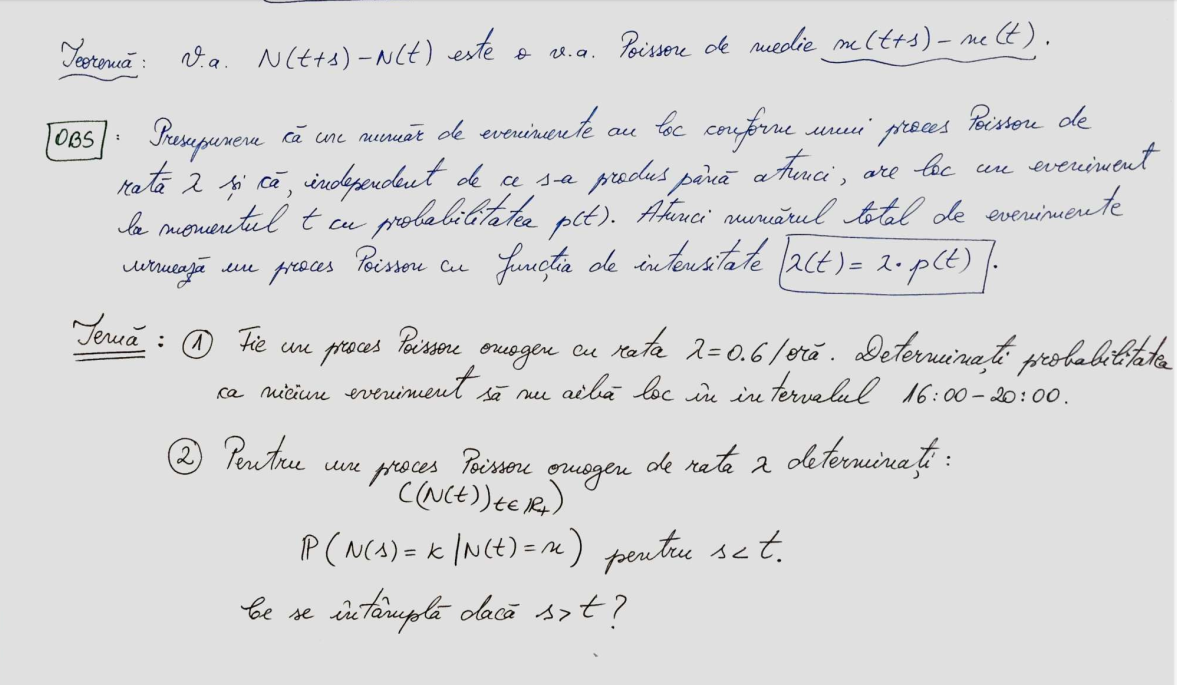 Teoremă: V.a. N(t+s)-N(t) este o v.a. Poisson de medie m(t+s)-m(t).
OBS: Presupunem că un număr de evenimente au loc conform unui proces Poisson de
rată λ și că, independent de ce s-a produs până atunci, are loc un eveniment
la momentul t cu probabilitatea p(t). Atunci numărul total de evenimente
urmează un proces Poisson cu funcția de intensitate λ(t) = λ·p(t).
Temă: ① Fie un proces Poisson omogen cu rata λ=0.6/oră. Determinați probabilitatea
ca niciun eveniment să nu aibă loc în intervalul 16:00-20:00.
② Pentru un proces Poisson omogen de rata λ determinați:
((N(t))t∈ℝ₊)
ℙ(N(s)=k|N(t)=n) pentru s<t.
Ce se întâmplă dacă s>t?